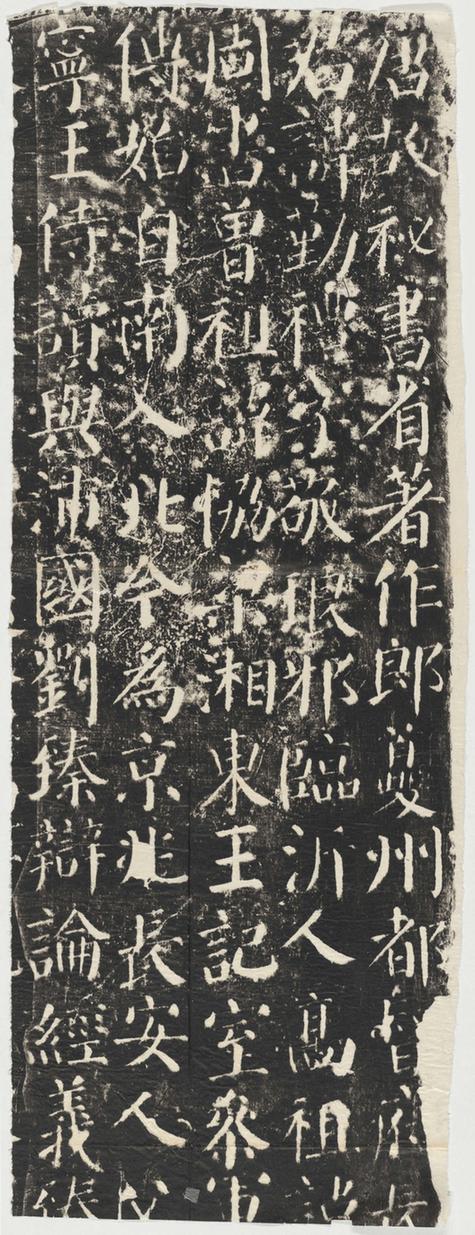 唐故祕書省著作郎夔州都督府
君諱勤禮字敬琅邪臨沂人高祖諱
周書曾祖諱協梁湘東王記室參軍
傳始自南入北今為京兆長安人父
寧王侍讀與沛國劉臻辯論經義臻